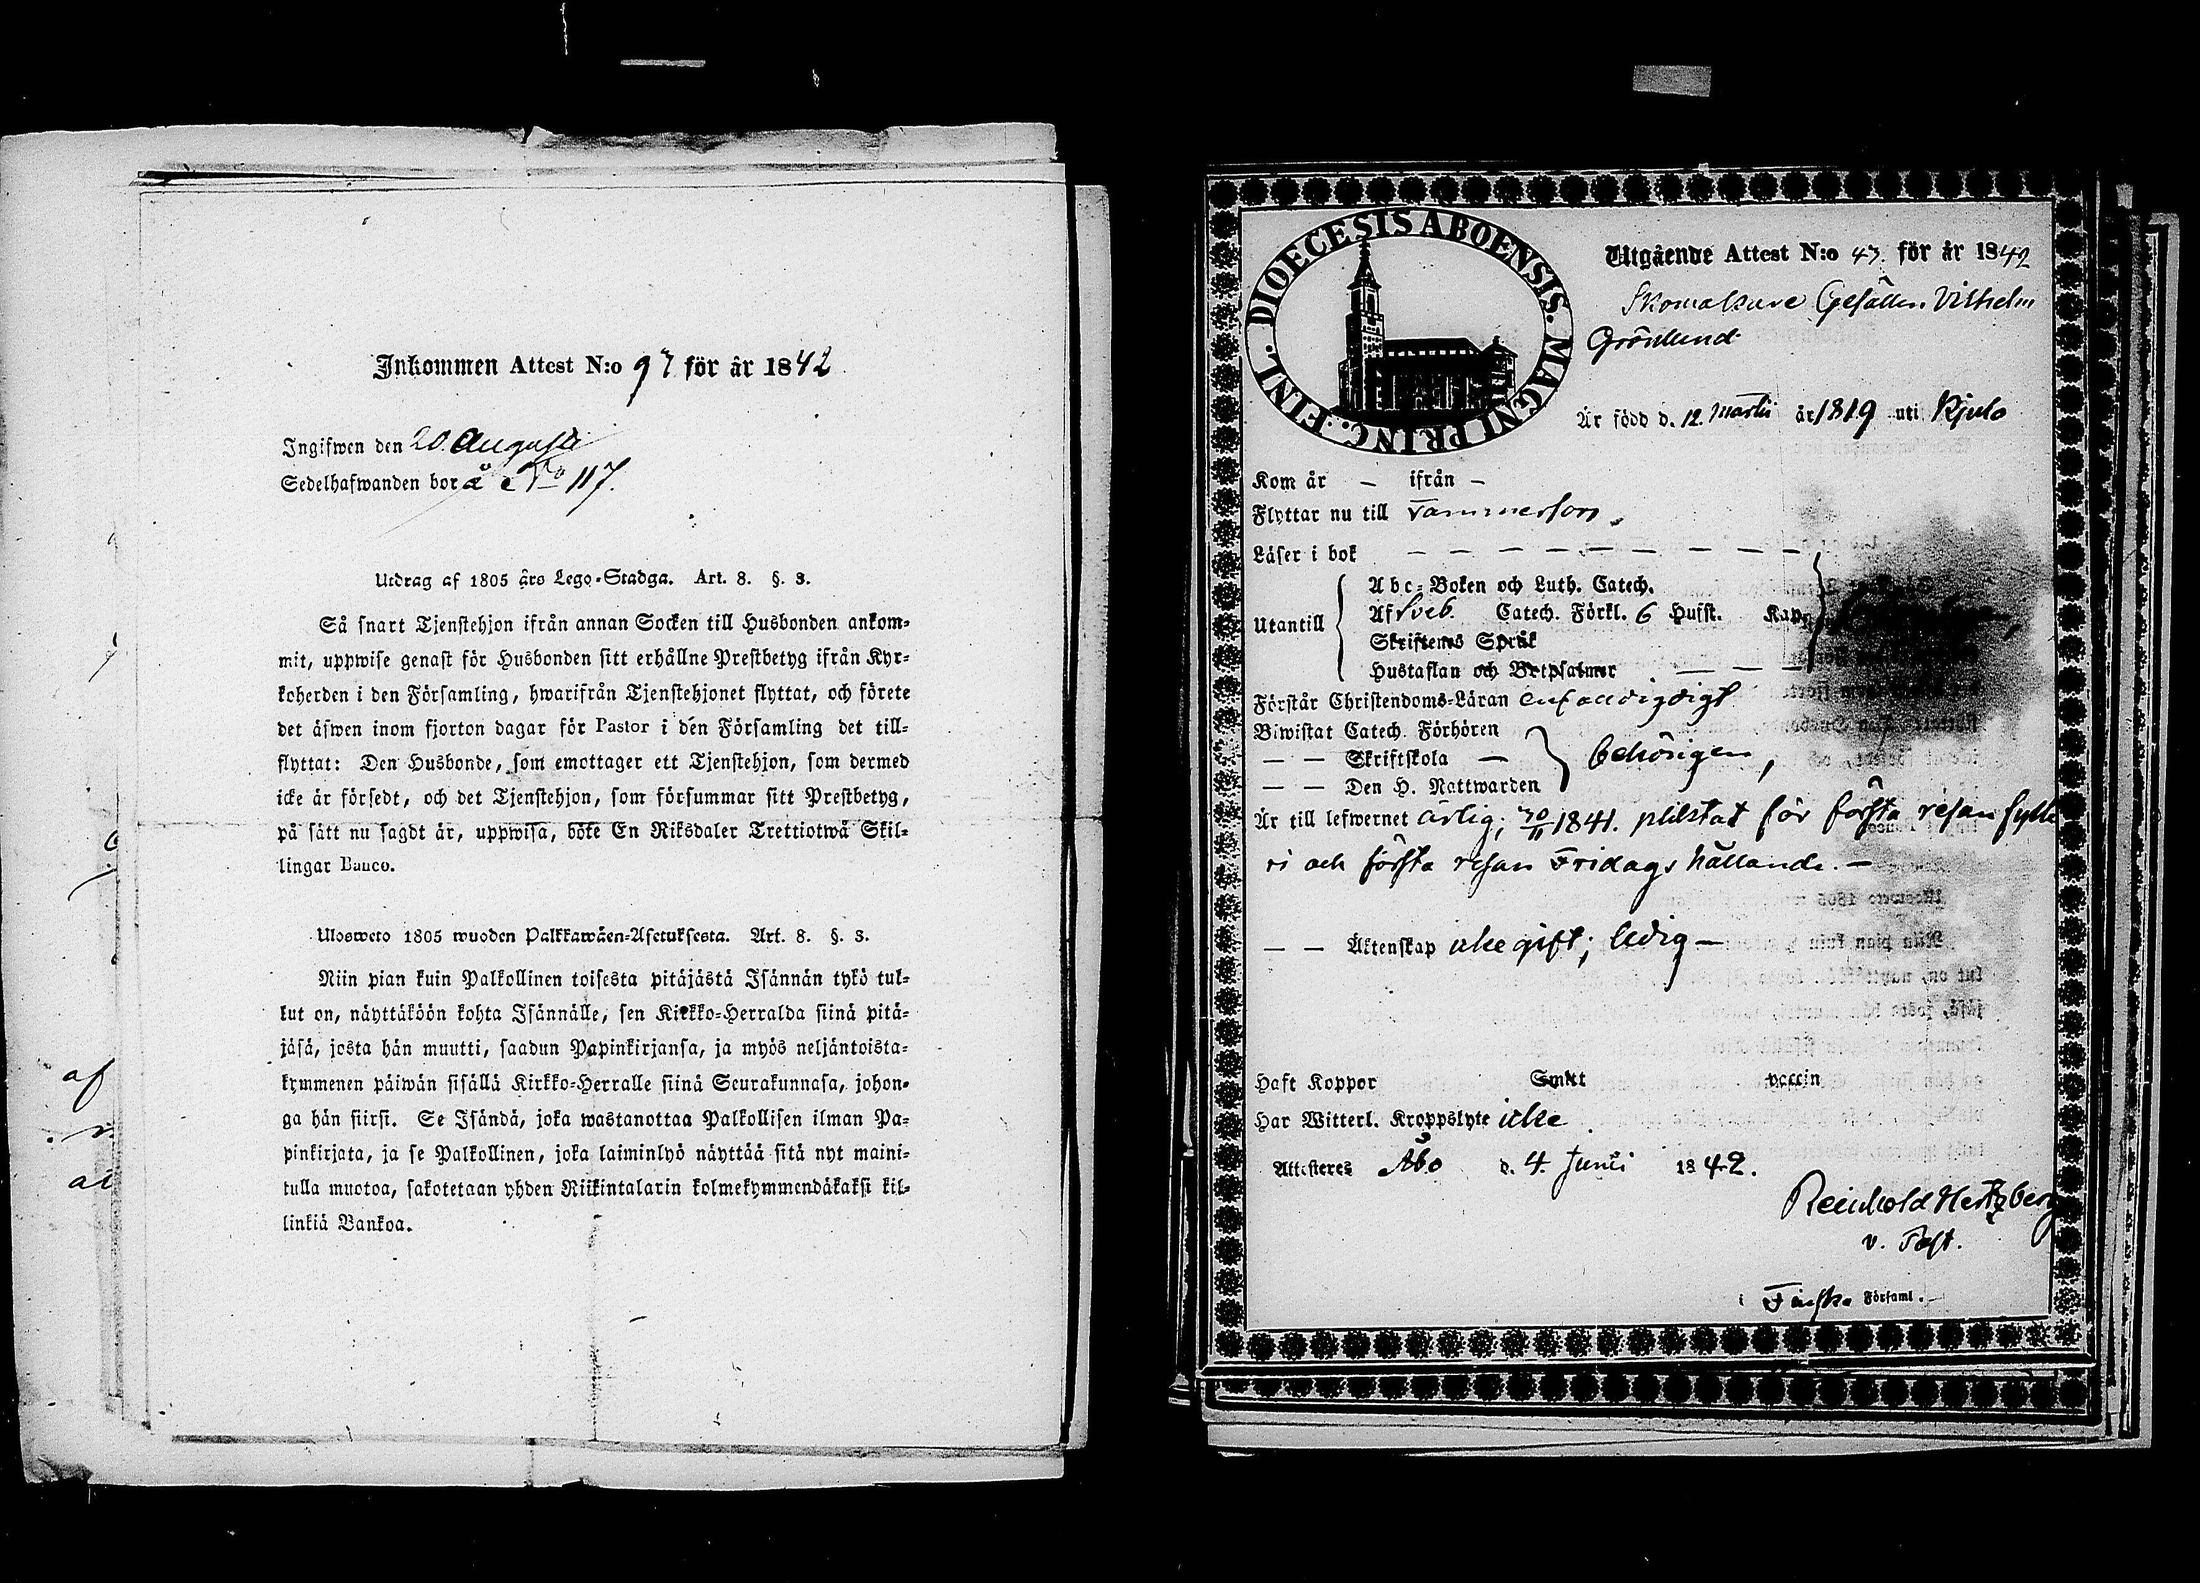 Inkommen Attest N:o 97 för år 1842
Ingifwen den 20. Augusti
Sedelhafwanden bor å No 117.
Utdrag af 1805 års Lego-Stadga. Art. 8. §. 3.
Så snart Tjenstehjon ifrån annan Socken till Husbonden ankom-
mit, uppwise genast för Husbonden sitt erhållne Prestbetyg ifrån Kyr-
koherden i den Församling, hwarifrån Tjenstehjonet flyttat, och förete
det äfwen inom fjorton dagar för Pastor i den Församling det till-
flyttat: Den Husbonde, som emottager ett Tjenstehjon, som dermed
icke är försedt, och det Tjenstehjon, som försummar sitt Prestbetyg,
på sätt nu sagdt är, uppwisa, böte En Riksdaler Trettiotwå Skil-
lingar Banco.
Ulosweto 1805 wuoden Palkkawäen-Asetuksesta. Art. 8. §. 3.
Niin pian kuin Palkollinen toisesta pitäjästä Isännän tykö tul-
lut on, näyttäköön kohta Isännälle, sen Kirkko-Herralda siinä pitä-
jäsä, josta hän muutti, saadun Papinkirjansa, ja myös neljäntoista-
kymmenen päiwän sisällä Kirkko-Herralle siinä Seurakunnasa, johon-
ga hän siirsi. Se Isändä, joka wastanottaa Palkollisen ilman Pa-
pinkirjata, ja se Palkollinen, joka laiminlyö näyttää sitä nyt maini-
tulla muotoa, sakotetaan yhden Riikintalarin kolmekymmendäkaksi kil-
linkiä Bankoa.
af
DIOECESIS ABOENSIS. MAGNI PRINC. FINL.
Utgående Attest N:o 47. för år 1842
Skomakare Gesällen Vilhelm
Grönlund
Är född d. 12. Martii år 1819 uti Kjulo
Kom år – ifrån –
Flyttar nu till Tammerfors.
Läser i bok – – – – – – – – –
Utantill
Abc-Boken och Luth. Catech.
Af Sveb. Catech. Förkl. 6 Hufst. Kap
Skriftenes Språk
Hustaflan och Botpsalmer – – –
Förstår Christendoms-Läran
Biwistat Catech. Förhören
— — Skriftskola —
— — Den H. Nattwarden
behörigen,
Är till lefwernet ärlig; 30/11 1841. pliktat för första resan fylle
ri och första resan Fridags hållande. —
— — Äktenskap icke gift; ledig —
Haft Koppor Smitt vaccin
Har Witterl. Kroppslyte icke
Attesteres Åbo d. 4. Junii 1842.
Reinhold Hertzberg
v. Past.
i Finska Församl.